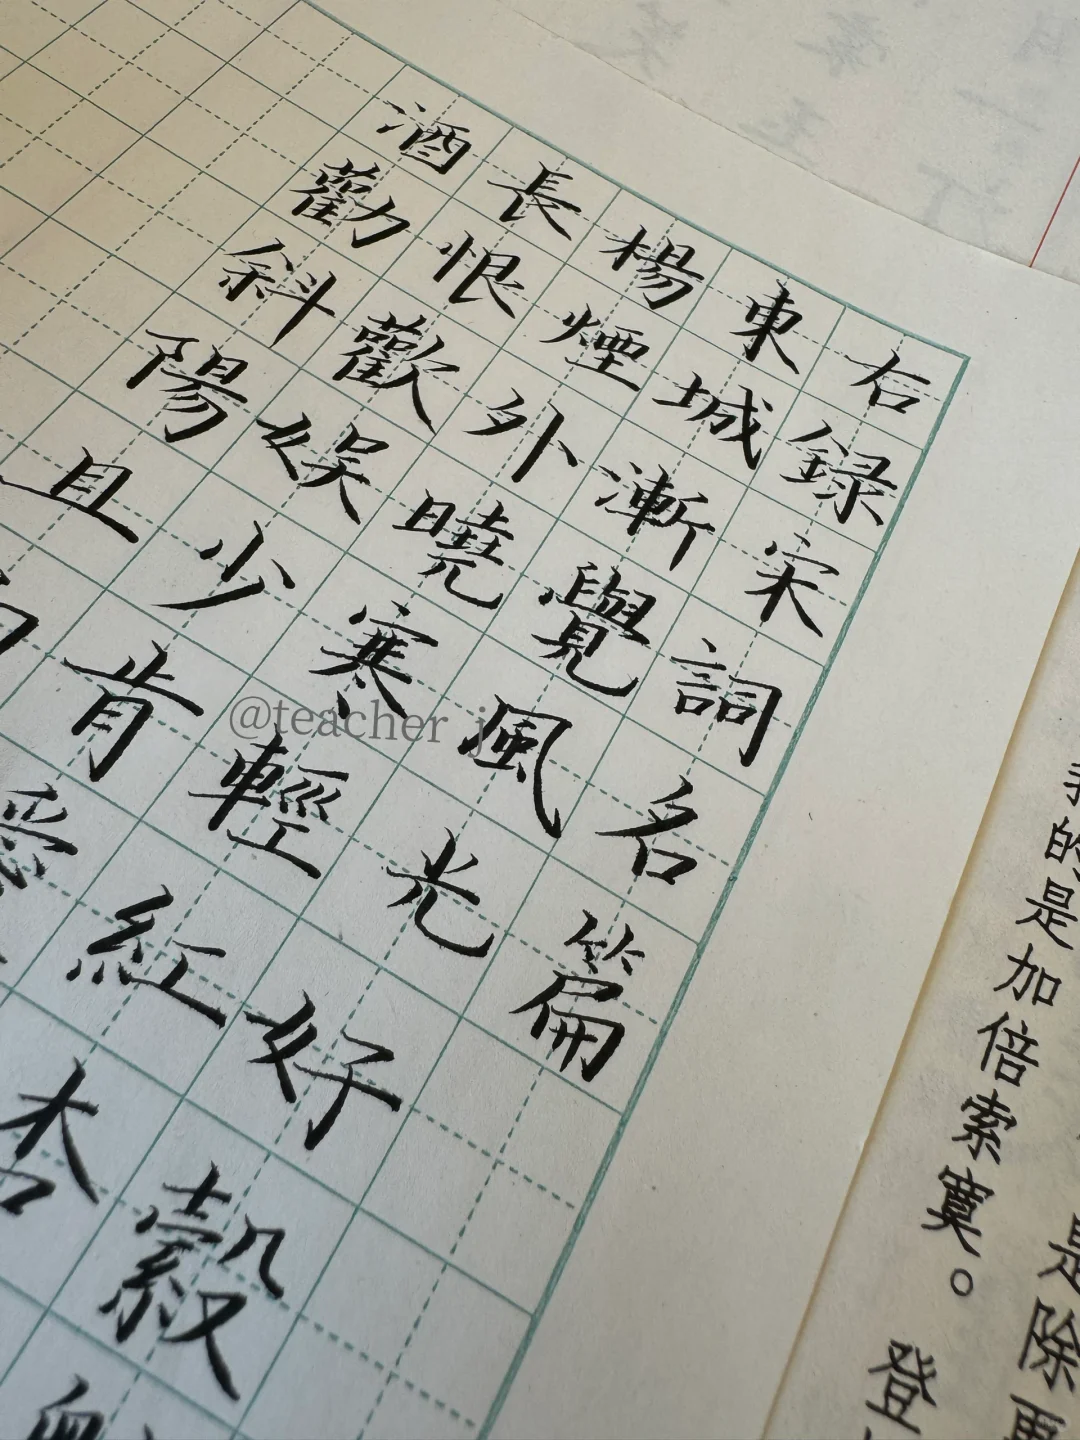 是除
的是加倍索寞。登
右錄宋詞名篇
東城漸覺風光好縠
楊煙外曉寒輕紅杏
長恨歡娛少肯愛
酒勸斜陽且
@teacher_j